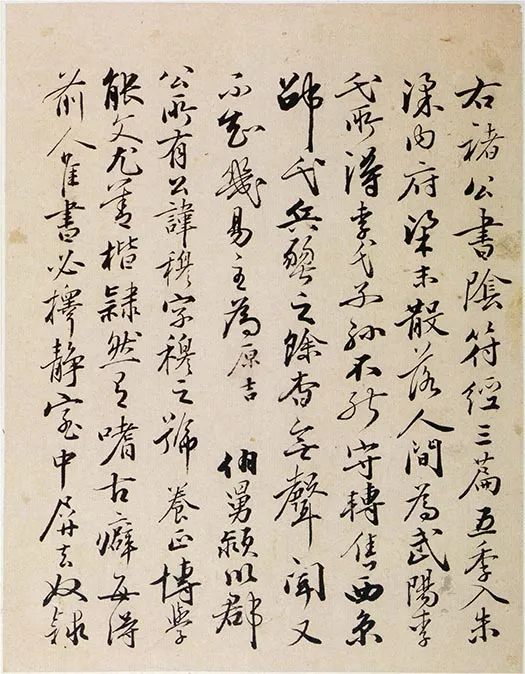 右褚公書陰符經三篇五季入朱
梁内府梁末散落人間為武陽李
氏所得李氏子孫不能守轉售西京
邵氏兵燹之餘杳無聲聞又
不知幾易主為原吉 伯舅潁川郡
公所有公諱穆字穆之號養正博學
能文尤善楷隸然有嗜古癖每得
前人佳書必擇靜室中屏去奴隸